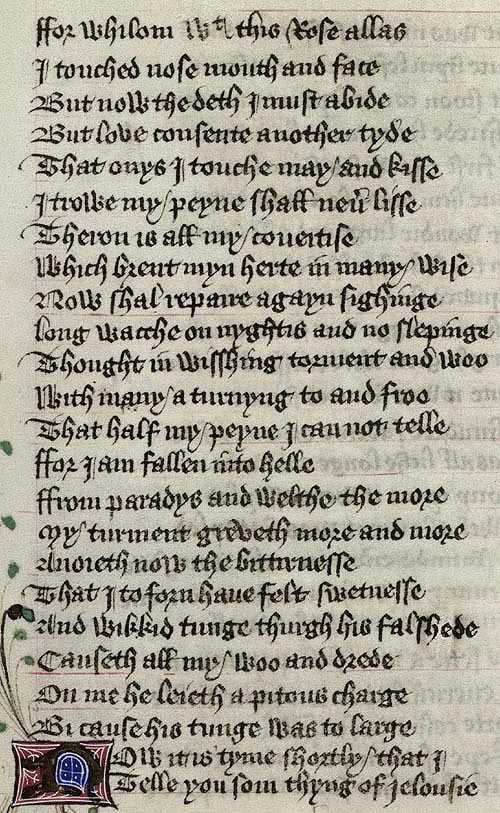 ffor whilom wt this Rose allas
I touched nose mouth and face
But now the deth I must abide
But love consente another tyde
That onys I touche may / and kisse
I trowe my / peyne shall neu̅ lisse
Theron is all my / coueitise
Which brent myn herte in many / wise
Now shal repaire agayn sighinge
long wacche on nyghtis and no slepinge
Thought in wisshing torment and woo
With many / a turnyng to and froo
That half my / peyne I can not telle
ffor I am fallen into helle
ffrom paradys and welthe the more
My / turment greveth more and more
Anoieth now the bittirnesse
That I toforn haue felt swetnesse
And wikkid tunge thurgh his falshede
Causeth all my / woo and drede
On me he leieth a pitous charge
Bi cause his tunge was to large
NOw it is tyme shortly / that I
Telle you som thyng of jelousie